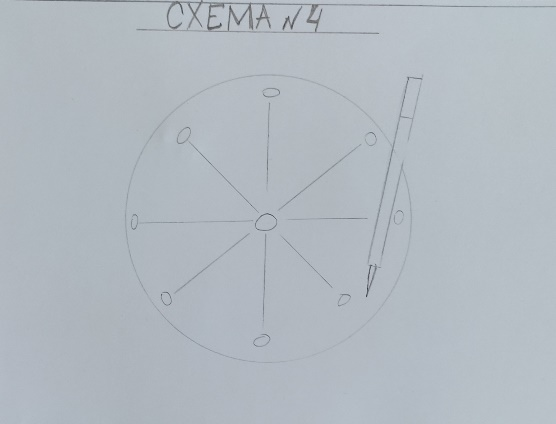 СХЕМА N 4